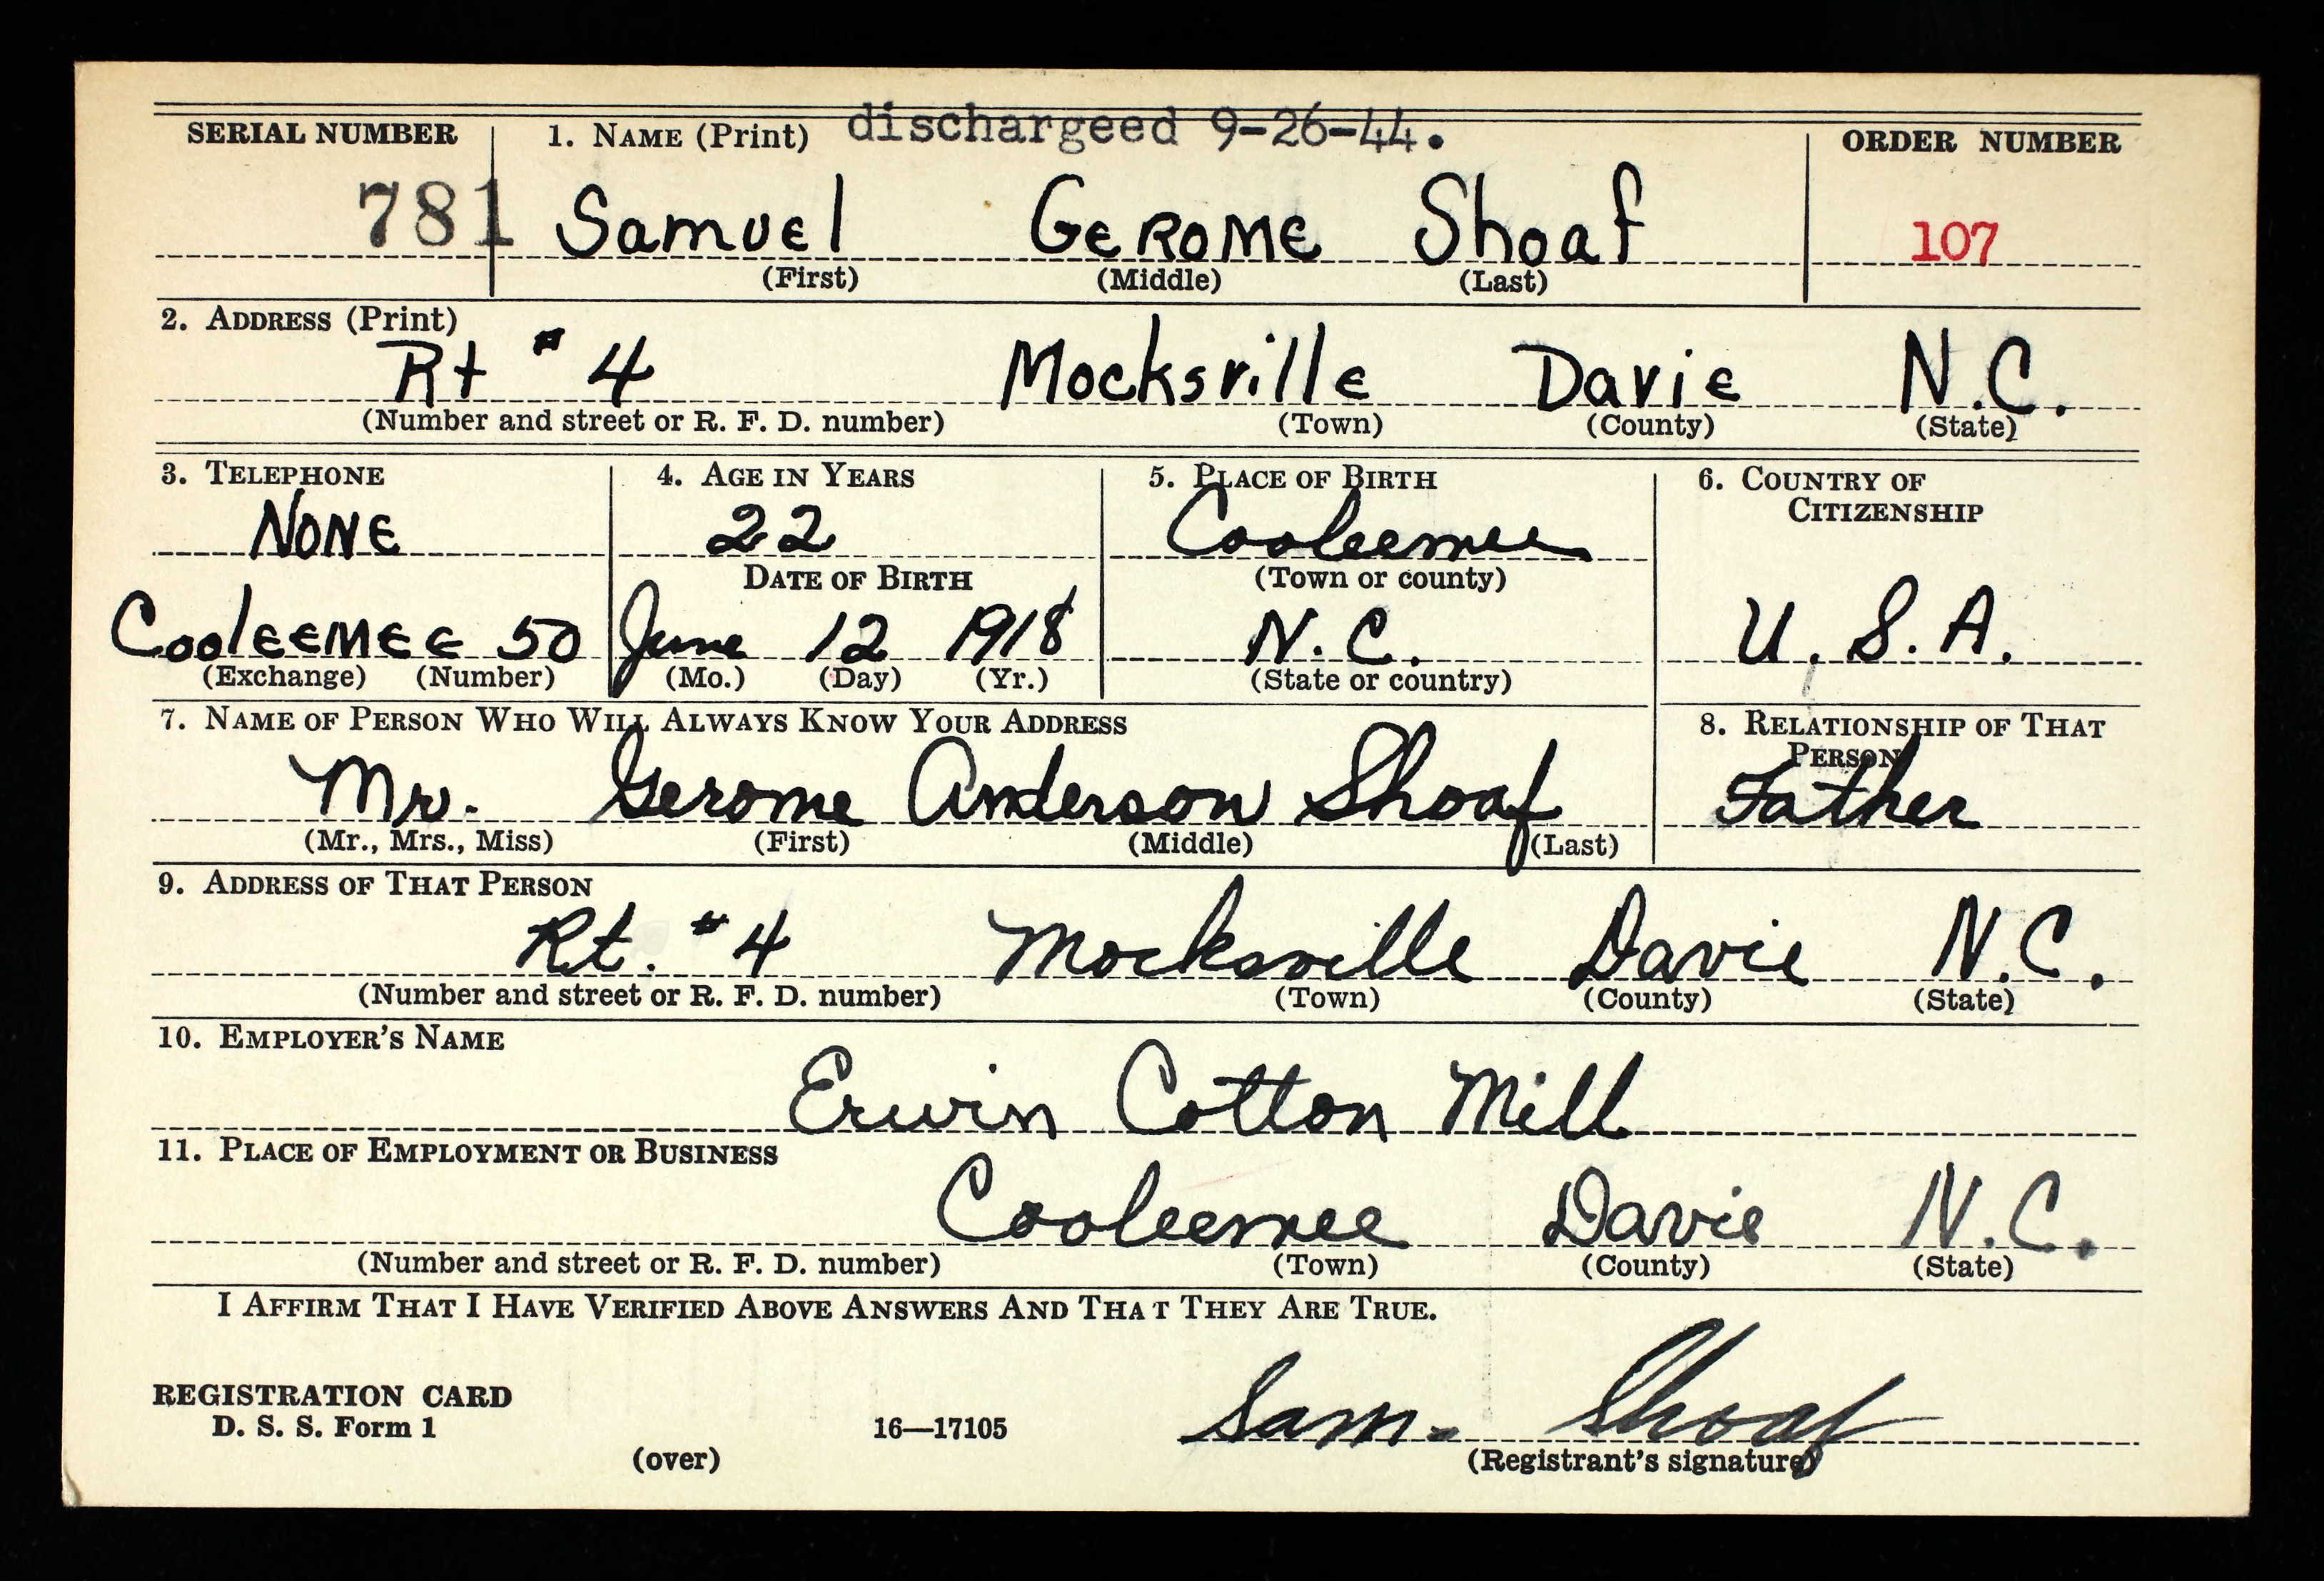 dischargeed 9-26-44.
SERIAL NUMBER 1. NAME (Print) ORDER NUMBER
781 Samuel GEROME Shoaf 107
(First) (Middle) (Last)
2. ADDRESS (Print)
Rt # 4 Mocksville Davie N.C.
(Number and street or R. F. D. number) (Town) (County) (State)
3. TELEPHONE 4. AGE IN YEARS 5. PLACE OF BIRTH 6. COUNTRY OF
CITIZENSHIP
NONE 22 Cooleemee
DATE OF BIRTH (Town or county)
CoolEEMEE 50 June 12 1918 N.C. U.S.A.
(Exchange) (Number) (Mo.) (Day) (Yr.) (State or country)
7. NAME OF PERSON WHO WILL ALWAYS KNOW YOUR ADDRESS 8. RELATIONSHIP OF THAT
PERSON
Mr. Gerome Anderson Shoaf Father
(Mr., Mrs., Miss) (First) (Middle) (Last)
9. ADDRESS OF THAT PERSON
Rt. # 4 Mocksville Davie N.C.
(Number and street or R. F. D. number) (Town) (County) (State)
10. EMPLOYER'S NAME
Erwin Cotton Mill
11. PLACE OF EMPLOYMENT OR BUSINESS
Cooleemee Davie N.C.
(Number and street or R. F. D. number) (Town) (County) (State)
I AFFIRM THAT I HAVE VERIFIED ABOVE ANSWERS AND THAT THEY ARE TRUE.
Sam. Shoaf
REGISTRATION CARD
D. S. S. Form 1 16—17105
(over) (Registrant's signature)